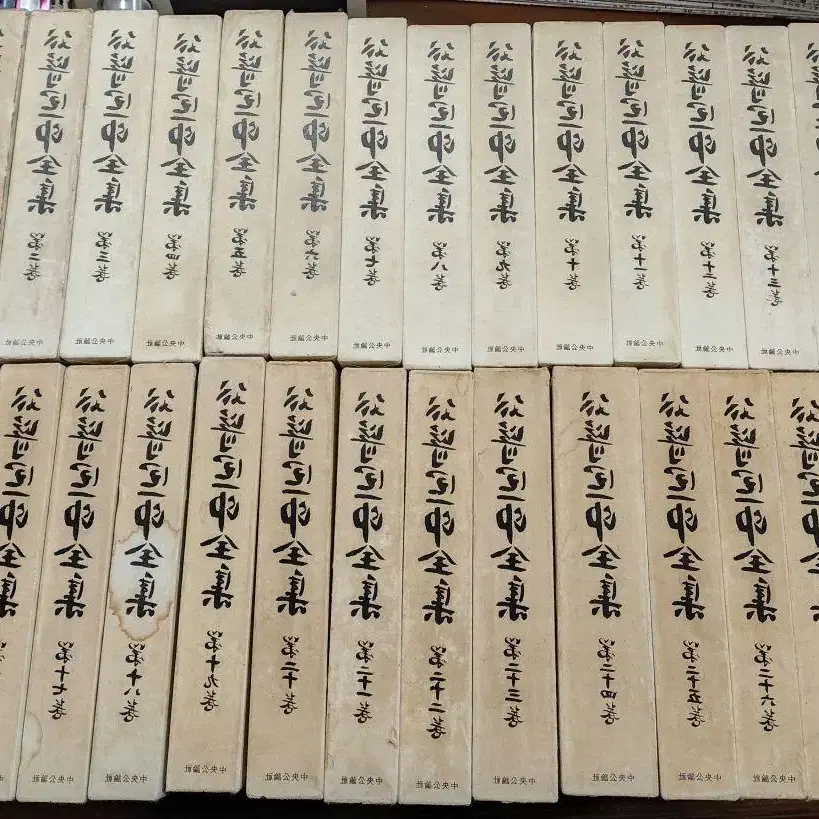 谷崎潤一郎全集 第二巻
中央公論社
谷崎潤一郎全集 第三巻
中央公論社
谷崎潤一郎全集 第四巻
中央公論社
谷崎潤一郎全集 第五巻
中央公論社
谷崎潤一郎全集 第六巻
中央公論社
谷崎潤一郎全集 第七巻
中央公論社
谷崎潤一郎全集 第八巻
中央公論社
谷崎潤一郎全集 第九巻
中央公論社
谷崎潤一郎全集 第十巻
中央公論社
谷崎潤一郎全集 第十一巻
中央公論社
谷崎潤一郎全集 第十二巻
中央公論社
谷崎潤一郎全集 第十三巻
中央公論社
谷崎潤一郎全集 第十七巻
中央公論社
谷崎潤一郎全集 第十八巻
中央公論社
谷崎潤一郎全集 第十九巻
中央公論社
谷崎潤一郎全集 第二十巻
中央公論社
谷崎潤一郎全集 第二十一巻
中央公論社
谷崎潤一郎全集 第二十二巻
中央公論社
谷崎潤一郎全集 第二十三巻
中央公論社
谷崎潤一郎全集 第二十四巻
中央公論社
谷崎潤一郎全集 第二十五巻
中央公論社
谷崎潤一郎全集 第二十六巻
中央公論社